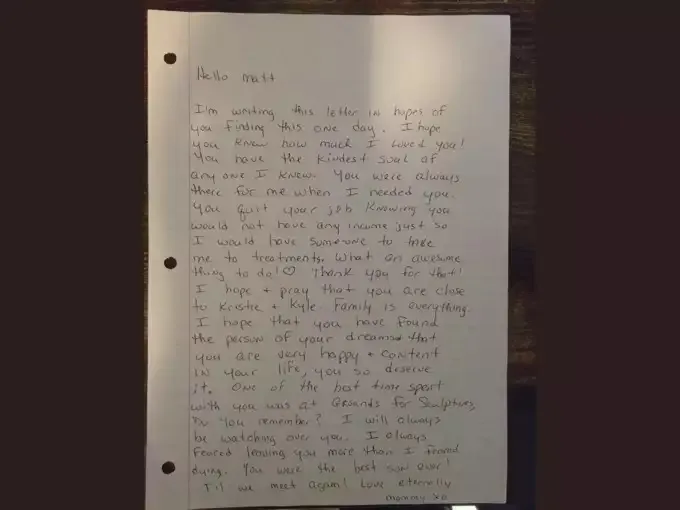 Hello Matt
I'm writing this letter in hopes of
you finding this one day. I hope
you knew how much I loved you!
You have the kindest soul of
anyone I knew. You were always
there for me when I needed you.
You quit your job knowing you
would not have any income just so
I would have someone to take
me to treatments. What an awesome
thing to do! ♡ Thank you for that!
I hope + pray that you are close
to Kristie + Kyle Family is everything.
I hope that you have found
the person of your dreams + that
you are very happy + content
in your life, you so deserve
it. One of the best time spent
with you was at Grounds for Sculpture,
Do you remember? I will always
be watching over you. I always
feared leaving you more than I feared
dying. You were the best son ever!
Til we meet again! Love eternally
Mommy xo